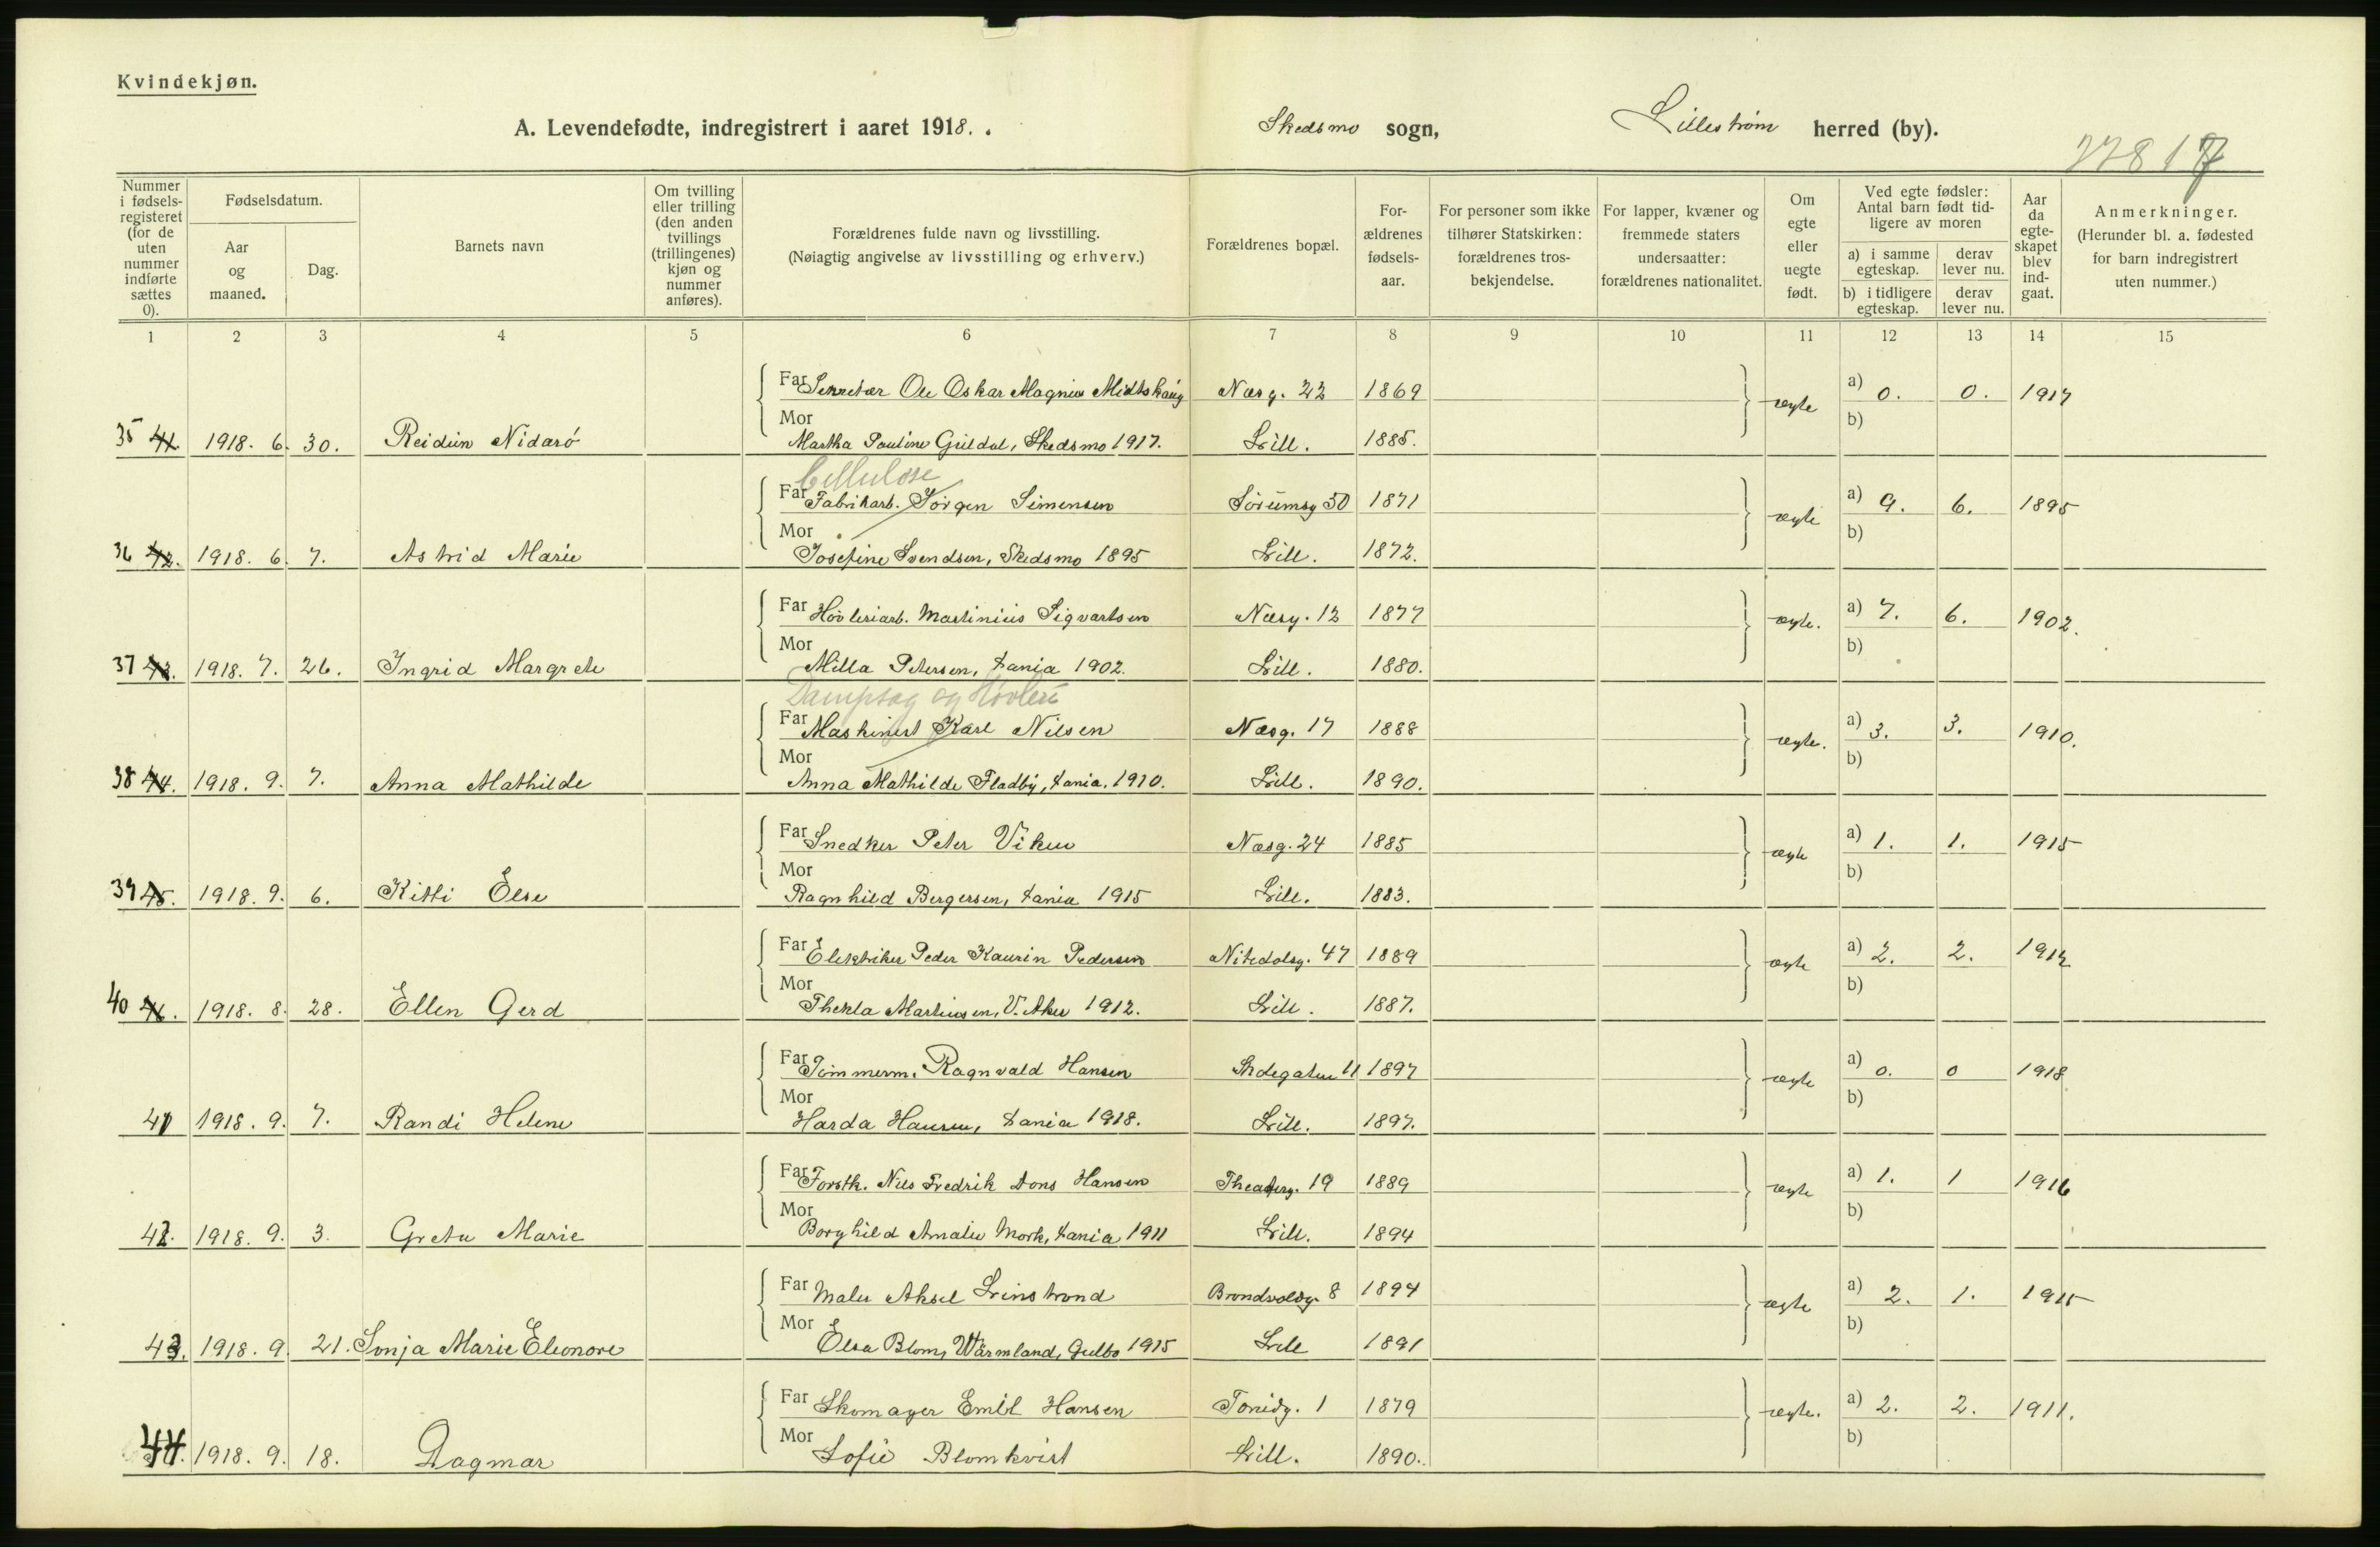 Kvindekjøn.
A. Levendefødte, indregistrert i aaret 1918. Skedsmo sogn, Lillestrøm herred (by).
Nummer i fødselsregisteret (for de uten nummer indførte sættes 0).
Fødselsdatum.
Aar og maaned.
Dag.
Barnets navn
Om tvilling eller trilling (den anden tvillings (trillingenes) kjøn og nummer anføres).
Forældrenes fulde navn og livsstilling.
(Nøiagtig angivelse av livsstilling og erhverv.)
Forældrenes bopæl.
Forældrenes fødselsaar.
For personer som ikke tilhører Statskirken: forældrenes trosbekjendelse.
For lapper, kvæner og fremmede staters undersaatter: forældrenes nationalitet.
Om egte eller uegte født.
Ved egte fødsler: Antal barn født tidligere av moren
a) i samme egteskap. derav lever nu.
b) i tidligere egteskap. derav lever nu.
Aar da egteskapet blev indgaat.
Anmerkninger.
(Herunder bl. a. fødested for barn indregistrert uten nummer.)
1 2 3 4 5 6 7 8 9 10 11 12 13 14 15
Far Sekretær Ole Oskar Magnus Midtskaug Næsg. 22 1869 ægte a) 0. 0. 1917
Mor b)
35 41 1918. 6. 30. Reidun Nidarö Martha Pauline Guldal, Skedsmo 1917. Lill. 1885.
Cellulose
Far Fabrikarb. Jörgen Simensen Sörumsg 50 1871 ægte a) 9. 6. 1895
Mor b)
36 42. 1918. 6. 7. Astrid Marie Josefine Svendsen, Skedsmo 1895 Lill. 1872.
Far Hövleriarb. Martinius Sigvartsen Næsg. 12 1877 ægte. a) 7. 6. 1902.
Mor b)
37 43. 1918. 7. 26. Ingrid Margrete Milla Petersen, Kania 1902. Lill. 1880.
Dampsag og Høvleri
Far Maskinist Karl Nilsen Næsg. 17 1888 ægte. a) 3. 3. 1910.
Mor b)
38 44. 1918. 9. 7. Anna Mathilde Anna Mathilde Fladby, Kania. 1910. Lill. 1890.
Far Snedker Peter Viken Næsg. 24 1885 ægte a) 1. 1. 1915
Mor b)
39 45. 1918. 9. 6. Kitti Else Ragnhild Bergersen, Kania 1915 Lill. 1883.
Far Elektriker Peder Kaurin Pedersen Nitedalsg. 47 1889 ægte a) 2. 2. 1912
Mor b)
40 46. 1918. 8. 28. Ellen Gerd Thekla Martinsen, V. Aker 1912. Lill. 1887.
Far Tömmerm. Ragnvald Hansen 11 1897 ægte a) 0. 0 1918
Mor b)
41 1918. 9. 7. Randi Helene Harda Hansen, Kania 1918. Lill. 1897.
Far Forstk. Nils Fredrik Dons Hansen Theaterg. 19 1889 ægte a) 1. 1 1916
Mor b)
42. 1918. 9. 3. Grete Marie Borghild Amalie Mork, Kania 1911 Lill. 1894
Far Maler Aksel Brondvoldg. 8 1894 ægte a) 2. 1. 1915
Mor b)
43. 1918. 9. 21. Sonja Marie Eleonore Elsa Blom, Wärmland, 1915 Lill 1891
Far Skomager Emil Hansen Tonidg. 1 1879 ægte. a) 2. 2. 1911.
Mor b)
44. 1918. 9. 18. Dagmar Sofie Blomkvist Lill. 1890.